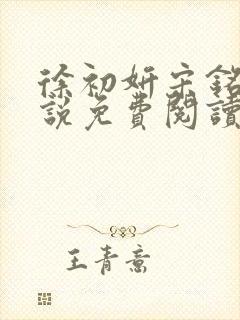 徐初妍宋銘
說免費閱讀
王青意